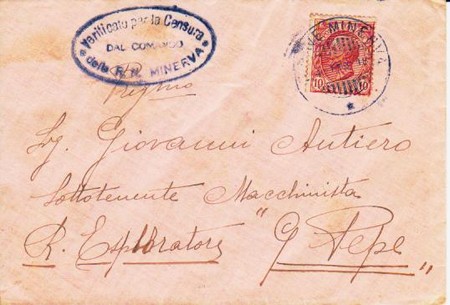 * Verificato per la Censura *
DAL COMANDO
della R. N. MINERVA
NAVE MINERVA
10 10
Sig. Giovanni Antiero
Sottotenente Macchinista
R. Esploratore "G. Pepe"